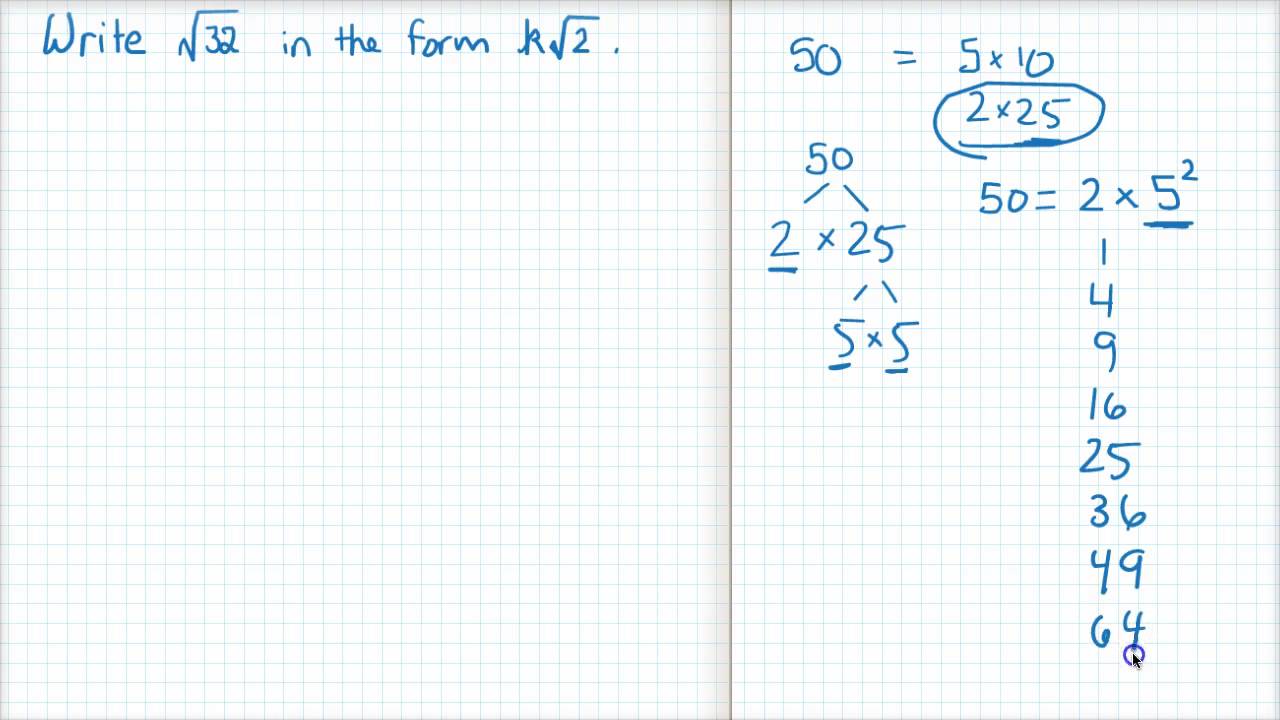 Write √32 in the form k√2.
50 = 5×10
2×25
50
2 × 25
5 × 5
50 = 2 × 5²
1
4
9
16
25
36
49
64